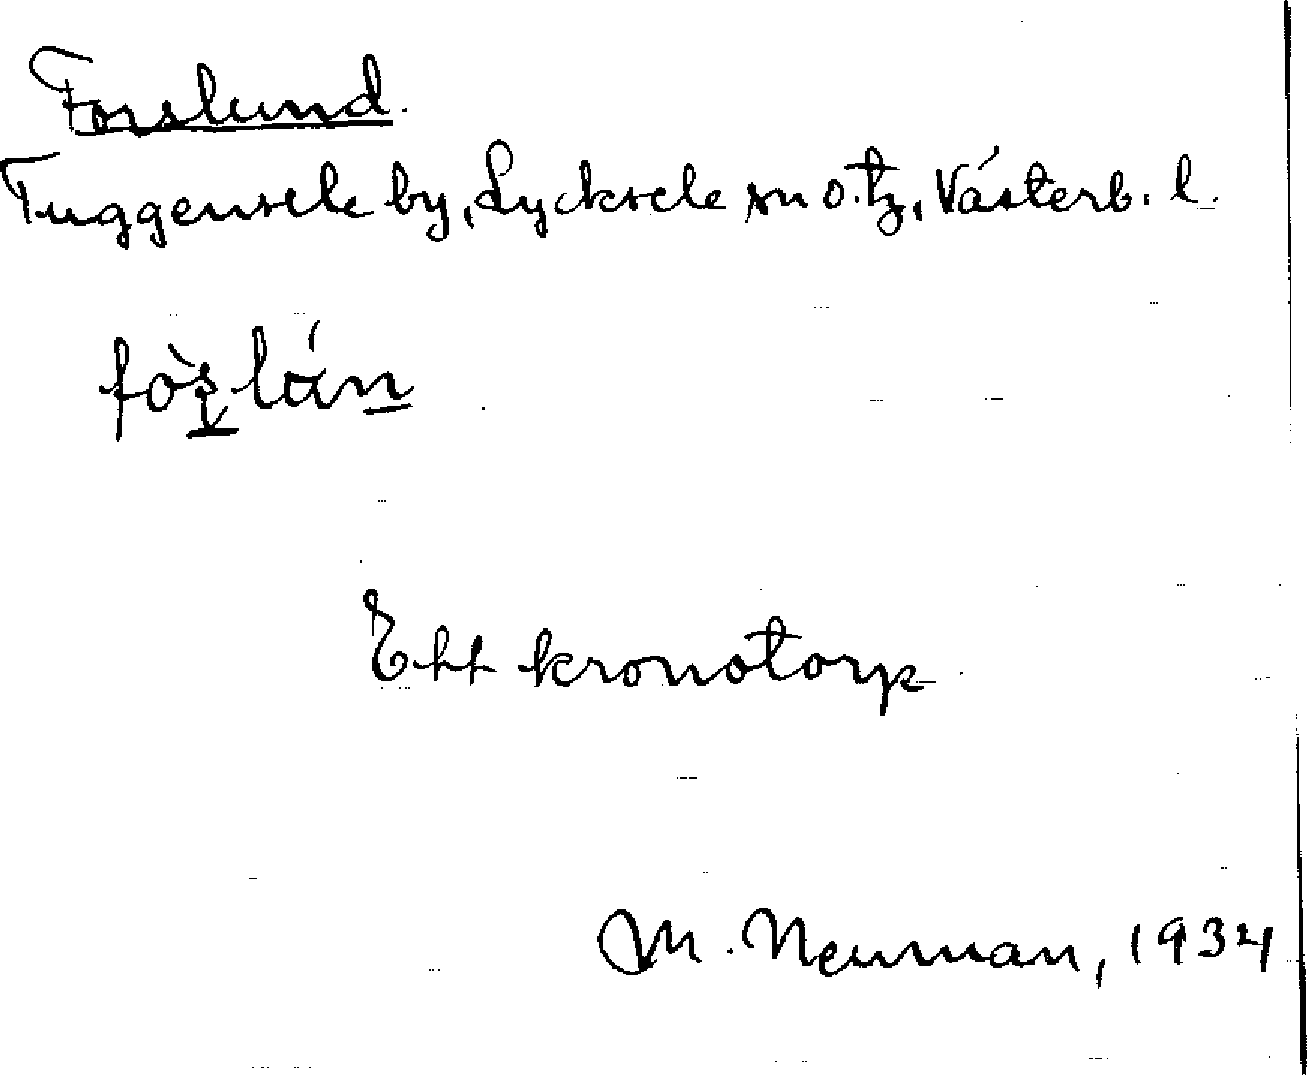 Forslund.
Tuggensele by, Lycksele sn o. tg, Västerb. l.
Ett kronotorp
M. Neuman, 1934